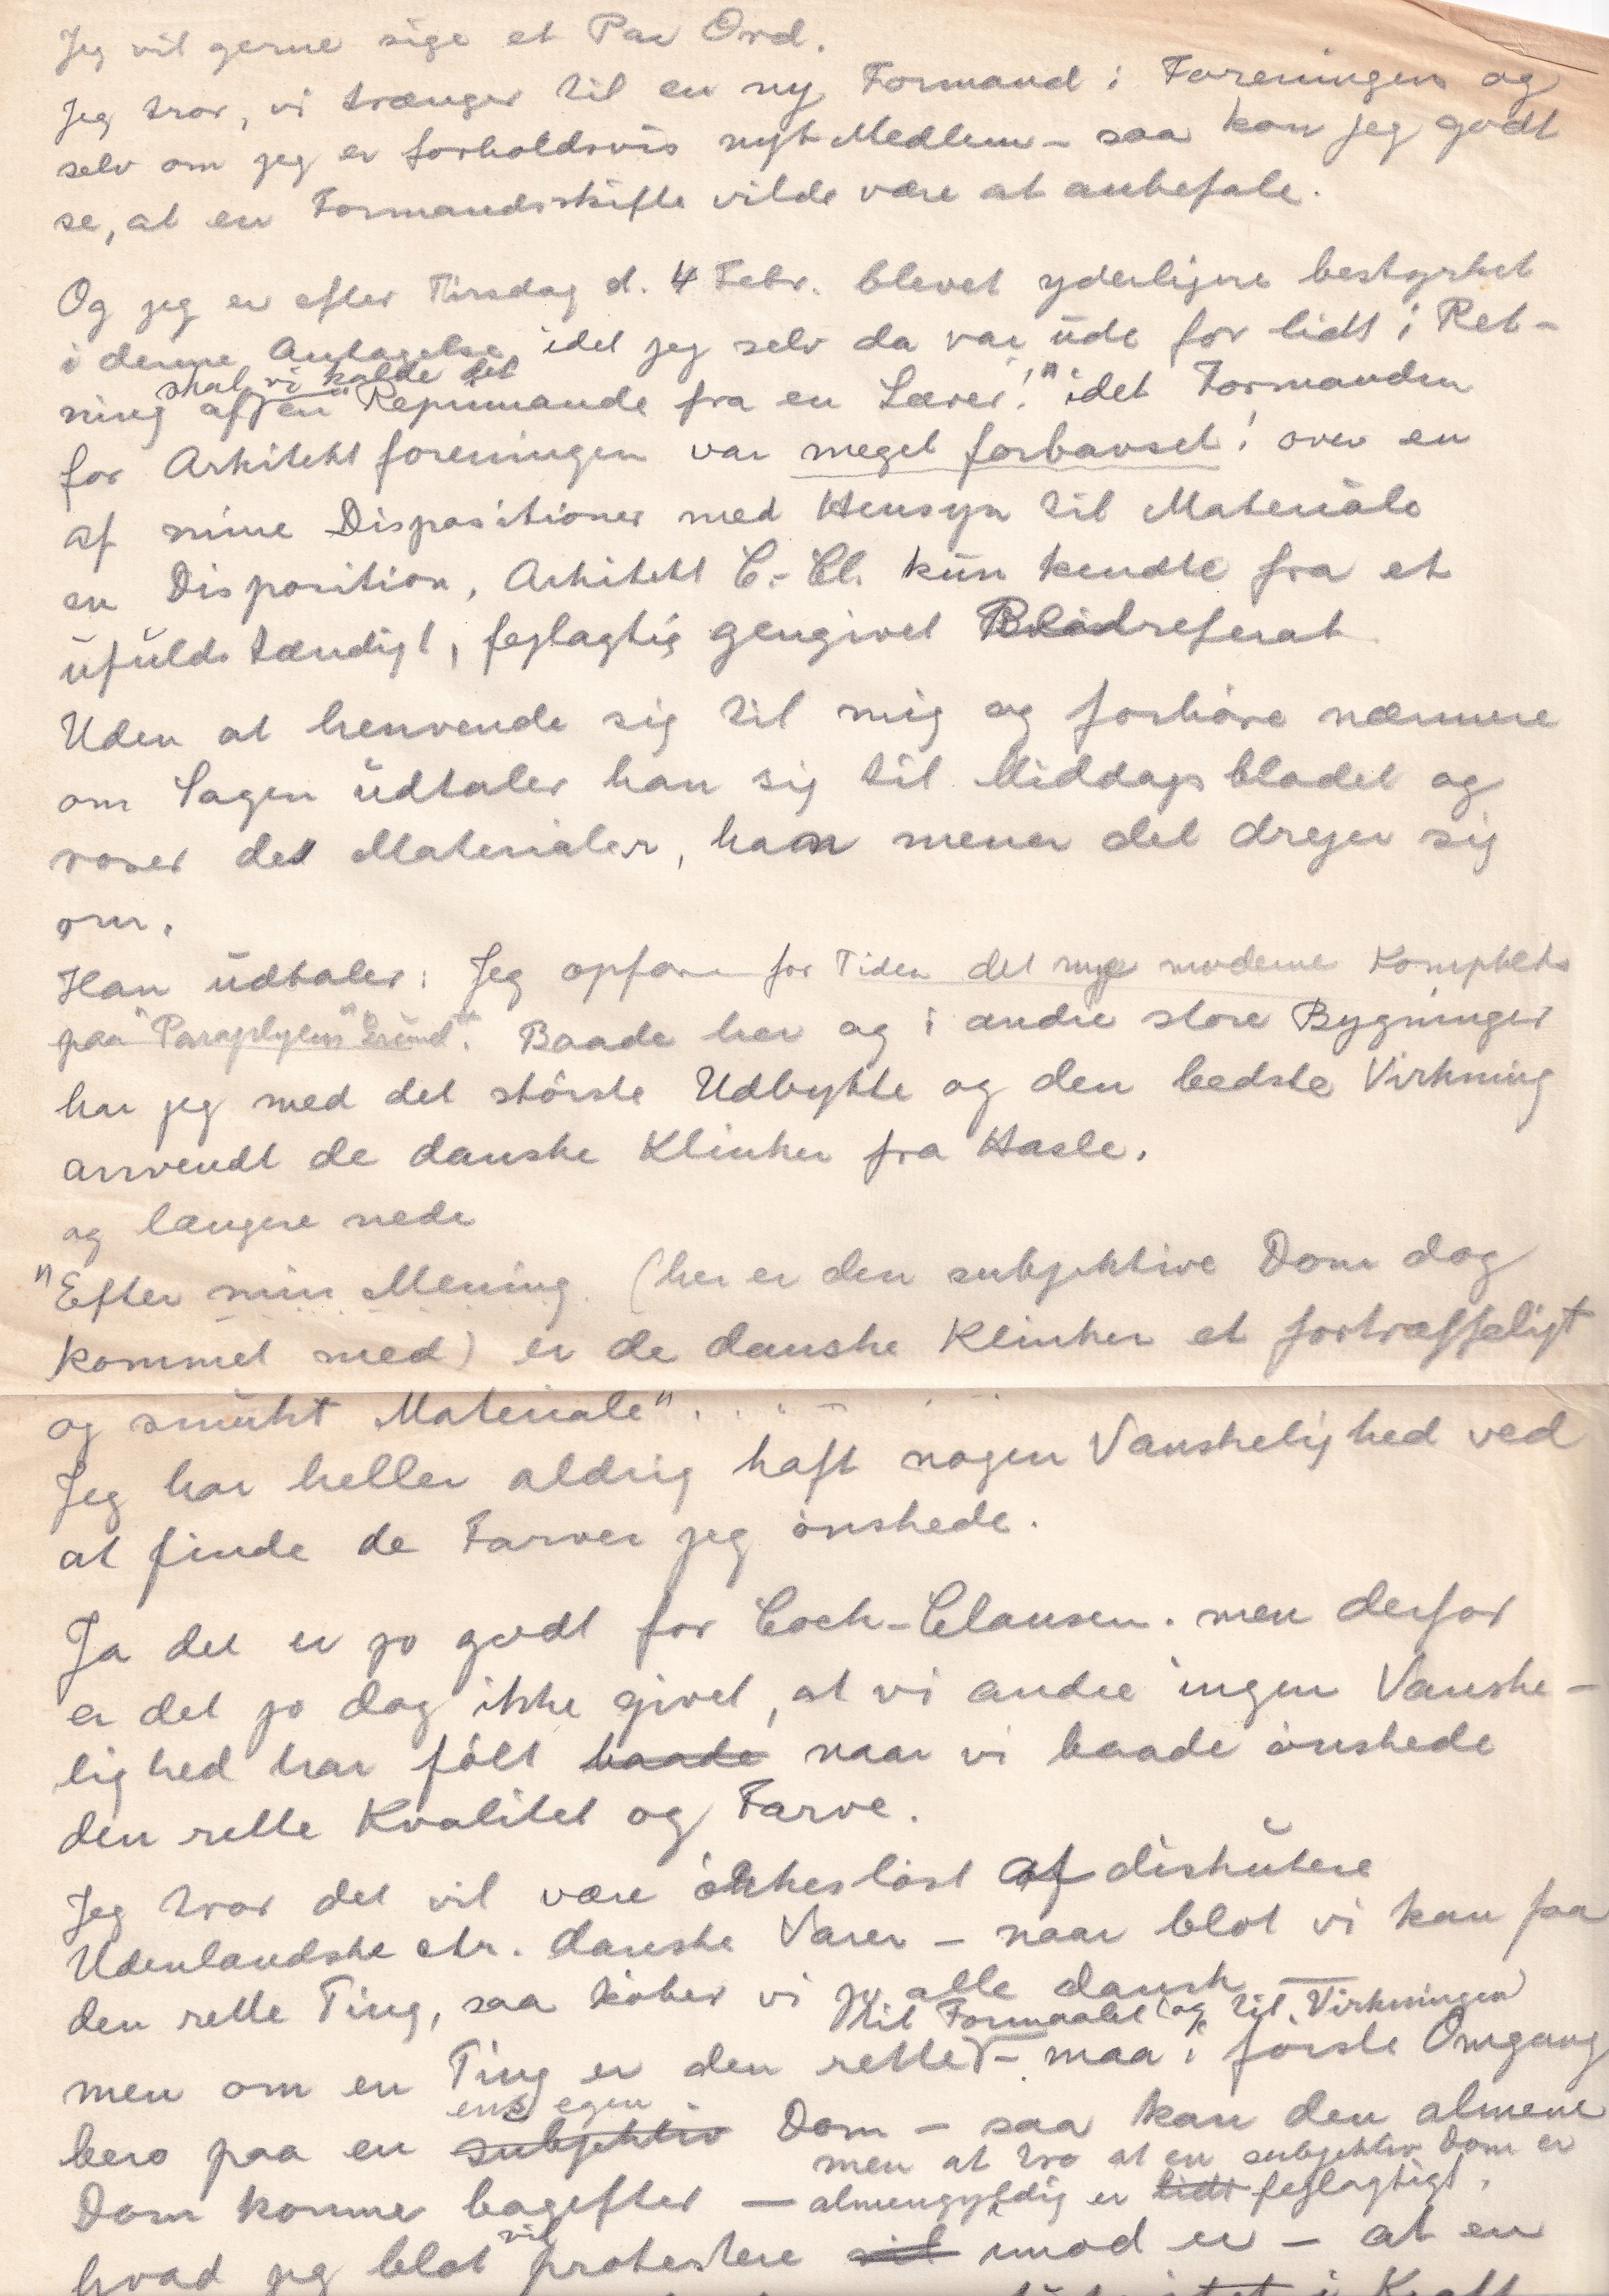 Jeg vil gerne sige et Par Ord.
Jeg tror, vi trænger til en ny Formand i Foreningen og
selv om jeg er forholdsvis nyt Medlem – saa kan jeg godt
se, at en Formandsskifte vilde være at anbefale.
Og jeg er efter Tirsdag d. 4 Febr. blevet yderligere bestyrket
i denne Antagelse, idet jeg selv da var ude for lidt i Ret-
skal vi kalde det
ning af "en Reprimande fra en Lærer!" idet Formanden
for Arkitektforeningen var meget forbavset! over en
af mine Dispositioner med Hensyn til Materiale
en Disposition, Arkitekt C.-Cl. kun kendte fra et
ufuldstændigt, fejlagtig gengivet Bladreferat
Uden at henvende sig til mig og forhøre nærmere
om Sagen udtaler han sig til Middagsbladet og
roser det Materialer, han mener det drejer sig
om.
Han udtaler: Jeg opfører for Tiden det nye moderne Kompleks
paa "Paraplyens" Grund". Baade her og i andre store Bygninger
har jeg med det største Udbytte og den bedste Virkning
anvendt de danske Klinker fra Hasle.
og længere nede
"Efter min Mening (her er den subjektive Dom dog
kommet med) er de danske Klinker et fortræffeligt
og smukt Materiale".
Jeg har heller aldrig haft nogen Vanskelighed ved
at finde de Farver jeg ønskede.
Ja det er jo godt for Coch-Clausen. men derfor
er det jo dog ikke givet, at vi andre ingen Vanske-
lighed har følt baade naar vi baade ønskede
den rette Kvalitet og Farve.
Jeg tror det vil være ørkesløst at diskutere
Udenlandske ctr. danske Varer – naar blot vi kan faa
den rette Ting, saa køber vi jo alle dansk –
til Formaalet (og til Virkningen)
men om en Ting er den rette – maa i første Omgang
ens egen
bero paa en subjektiv Dom – saa kan den almene
men at tro at en subjektiv Dom er
Dom komme bagefter – almengyldig er lidt fejlagtigt.
vil
hvad jeg blot protestere vil imod er – at en